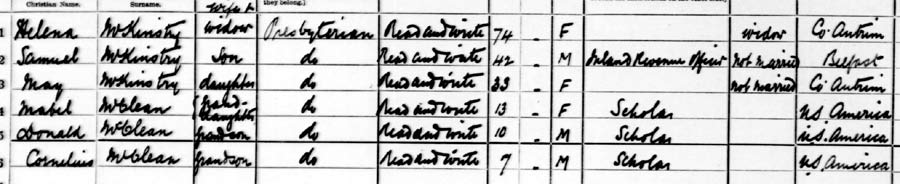 Christian Name. Surname. they belong.)
1 Helena McKinstry widow Presbyterian Read and write 74 - F widow Co. Antrim
2 Samuel McKinstry Son do Read and write 42 - M Inland Revenue Officer not married Belfast
3 May McKinstry daughter do Read and write 33 - F not married Co. Antrim
4 Mabel McClean grand-daughter do Read and write 13 - F Scholar U.S. America
5 Donald McClean grandson do Read and write 10 - M Scholar U.S. America
6 Cornelius McClean grandson do Read and write 7 - M Scholar U.S. America